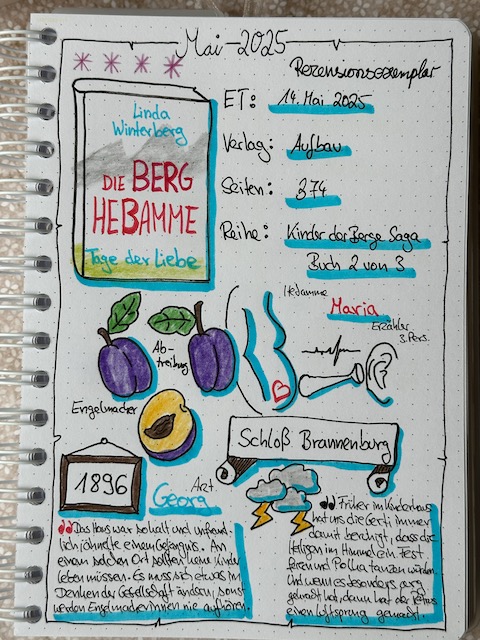 Mai 2025
Rezensionsexemplar
Linda
Winterberg
DIE BERG
HEBAMME
Tage der Liebe
ET: 14. Mai 2025
Verlag: Aufbau
Seiten: 374
Reihe: Kinder der Berge Saga
Buch 2 von 3
Hebamme
Maria
Erzähler
3. Pers.
Ab-
treibung
Engelmacher
Schloß Brannenburg
1896
Arzt
Georg
Das Haus war so kalt und unfreund-
lich, ähnelte einem Gefängnis. An
einem solchen Ort sollten keine Kinder
leben müssen. Es muss sich etwas im
Denken der Gesellschaft ändern, sonst
werden Engelmacherinnen nie aufhören.
Früher im Kinderhaus
hat uns die Gerti immer
damit beruhigt, dass die
Heiligen im Himmel ein Fest
feiern und Polka tanzen würden.
Und wenn es besonders arg
gekracht hat, dann hat der Petrus
einen Luftsprung gemacht.